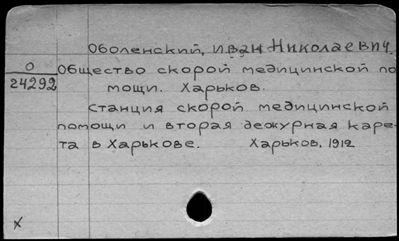 Оболенский, Иван Николаевич.
О
24292
Общество скорой медицинской по
мощи. Харьков.
Станция скорой медицинской
помощи и вторая дежурная каре-
та в Харькове. Харьков, 1912
х